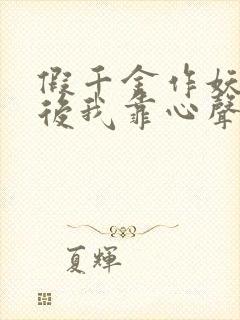 假千金作妖
後我靠心聲
夏輝